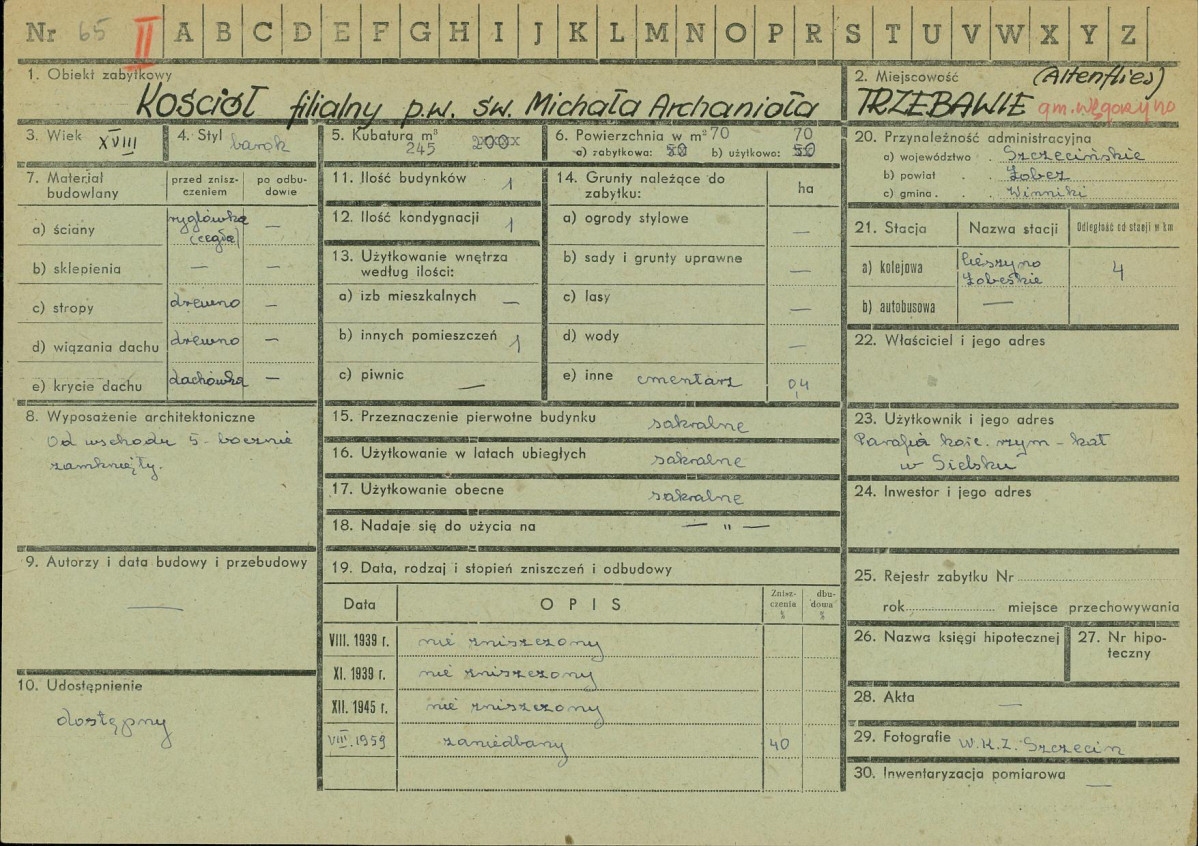 Nr 65 II A B C D E F G H I J K L M N O P R S T U V W X Y Z
1. Obiekt zabytkowy
Kościół filialny p.w. św. Michała Archanioła
2. Miejscowość (Altenflies)
TRZEBAWIE gm. Węgorzyno
3. Wiek XVIII
4. Styl barok
5. Kubatura m³
245
6. Powierzchnia w m² 70 70
a) zabytkowa: b) użytkowa:
7. Materiał budowlany
przed zniszczeniem
po odbudowie
a) ściany ryglówka (cegła) —
b) sklepienia — —
c) stropy drewno —
d) wiązania dachu drewno —
e) krycie dachu dachówka —
8. Wyposażenie architektoniczne
Od wschodu 5-bocznie
zamknięty.
9. Autorzy i data budowy i przebudowy
—
10. Udostępnienie
dostępny
11. Ilość budynków 1
12. Ilość kondygnacji 1
13. Użytkowanie wnętrza
według ilości:
a) izb mieszkalnych —
b) innych pomieszczeń 1
c) piwnic —
14. Grunty należące do
zabytku: ha
a) ogrody stylowe —
b) sady i grunty uprawne —
c) lasy —
d) wody —
e) inne cmentarz 04
15. Przeznaczenie pierwotne budynku sakralne
16. Użytkowanie w latach ubiegłych sakralne
17. Użytkowanie obecne sakralne
18. Nadaje się do użycia na — " —
19. Data, rodzaj i stopień zniszczeń i odbudowy
Data OPIS Zniszczenia % dbudowa %
VIII. 1939 r. nie zniszczony
XI. 1939 r. nie zniszczony
XII. 1945 r. nie zniszczony
VIII. 1959 zaniedbany 40
20. Przynależność administracyjna
a) województwo . Szczecińskie
b) powiat . . Łobez
c) gmina . . . Winniki
21. Stacja Nazwa stacji Odległość od stacji w km
a) kolejowa Cieszyno Łobeskie 4
b) autobusowa —
22. Właściciel i jego adres
23. Użytkownik i jego adres
Parafia kośc. rzym-kat
w Sielsku
24. Inwestor i jego adres
25. Rejestr zabytku Nr
rok miejsce przechowywania
26. Nazwa księgi hipotecznej
27. Nr hipoteczny
28. Akta —
29. Fotografie W.K.Z. Szczecin
30. Inwentaryzacja pomiarowa —